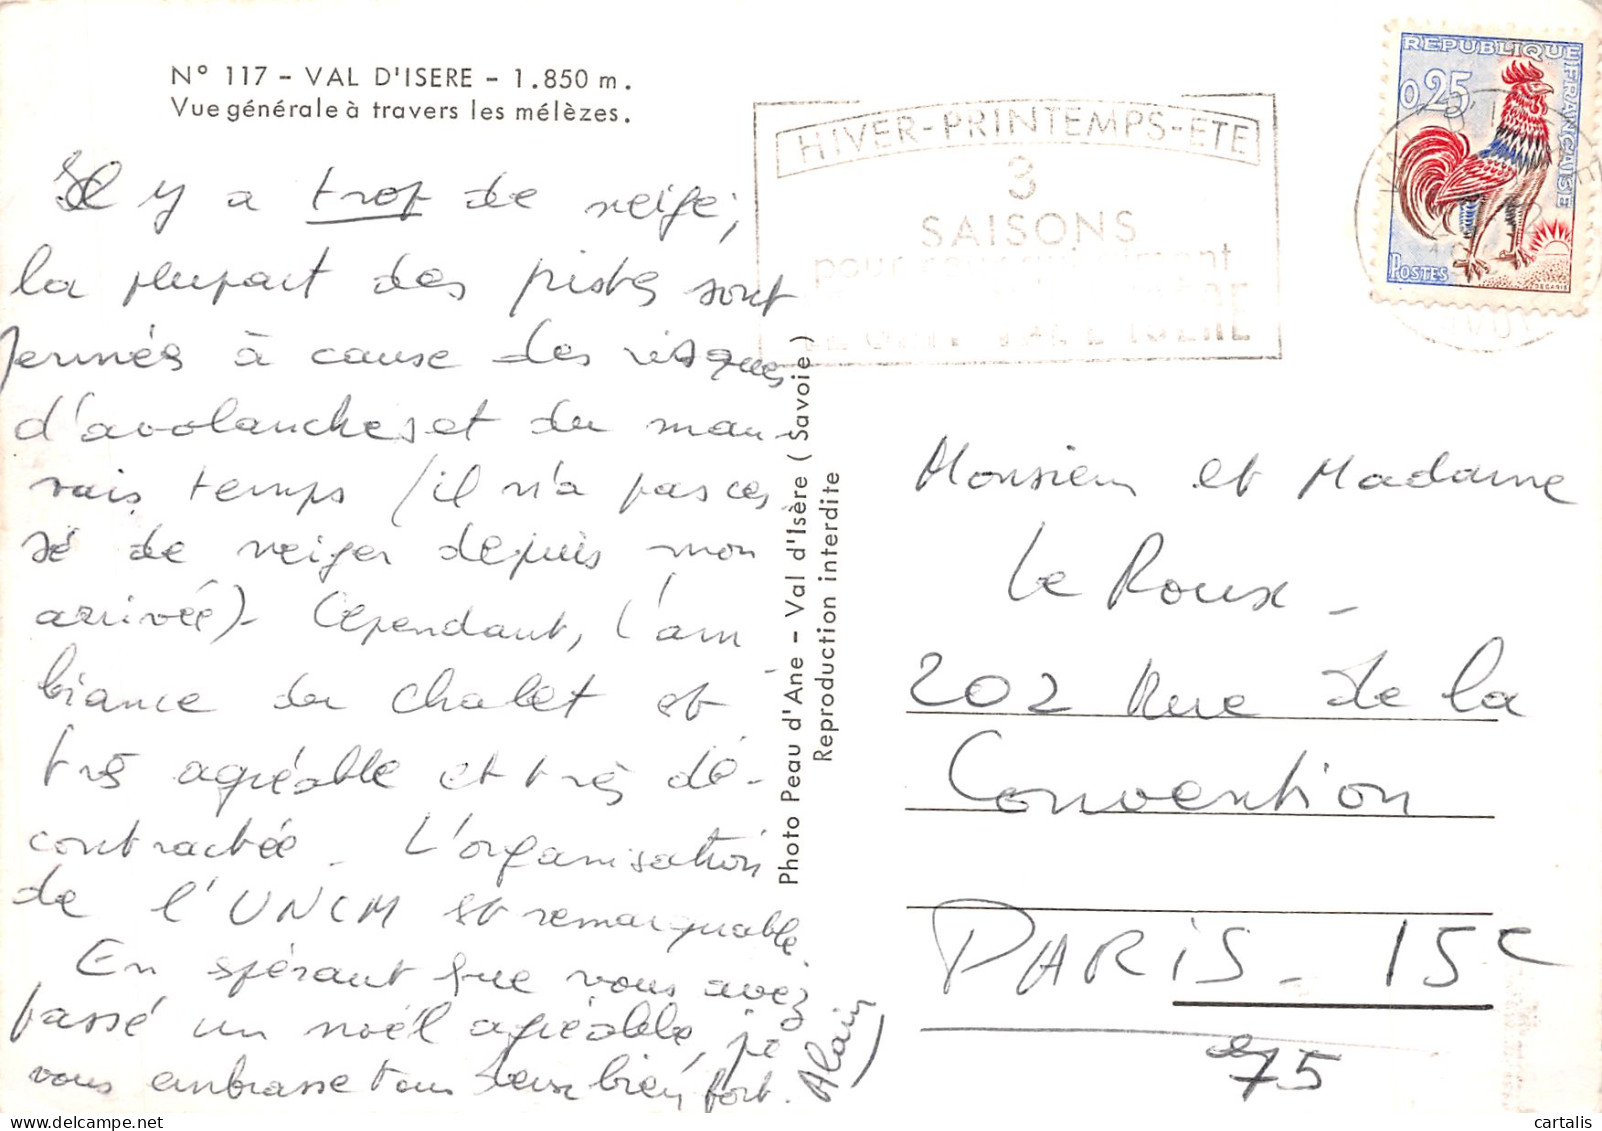 N° 117 - VAL D'ISERE - 1.850 m.
Vue générale à travers les mélèzes.
Il y a trop de neige;
la plupart des pistes sont
fermés à cause des risques
d'avalanches et du mau-
vais temps (il n'a pas ces
sé de neiger depuis mon
arrivée)- Cependant, l'am
biance du chalet est
très agréable et très dé-
contractée. L'organisation
de l'UNCM est remarquable.
En espérant que vous avez
passé un noël agréable, je
vous embrasse tous deux bien fort.
Alain
Photo Peau d'Ane - Val d'Isère (Savoie)
Reproduction interdite
HIVER-PRINTEMPS-ETE
3
SAISONS
pour
ISERE
REPUBLIQUE FRANÇAISE
0,25
POSTES
DECARIS
Monsieur et Madame
Le Roux -
202 Rue de la
Convention
PARIS - 15e
75
cartalis
delcampe.net